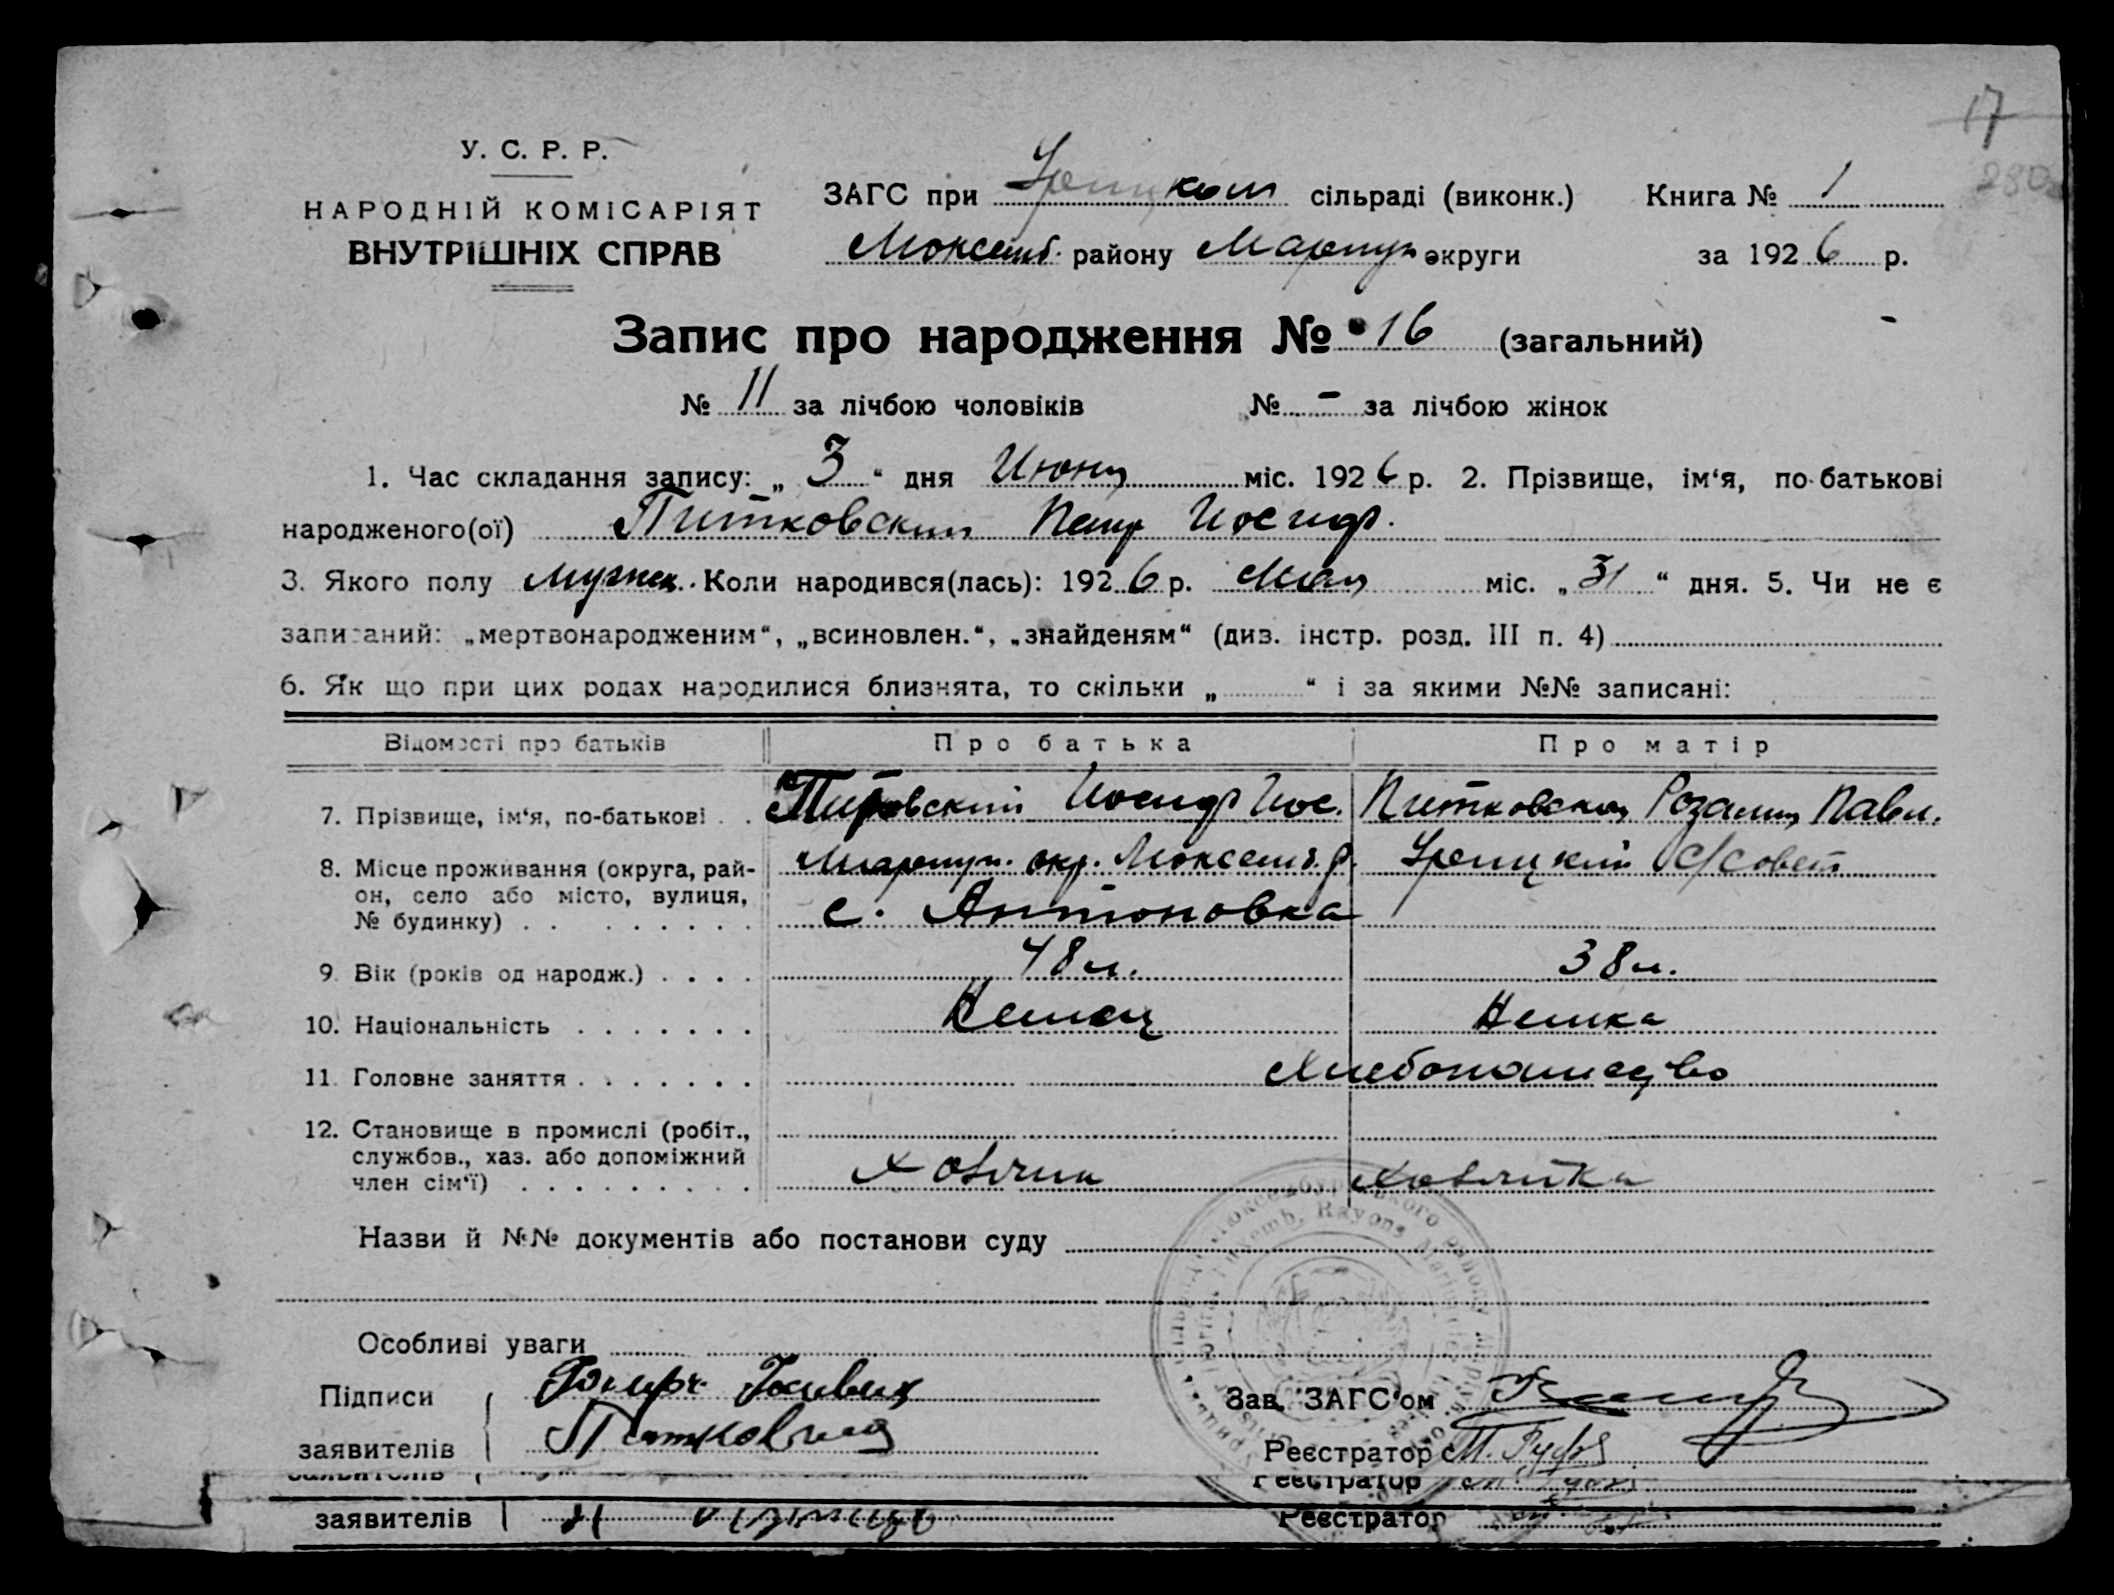 17
280
У. С. Р. Р.
НАРОДНІЙ КОМІСАРІЯТ
ВНУТРІШНІХ СПРАВ
ЗАГС при Урицком сільраді (виконк.) Книга № 1
Люксемб. району Мариуп округи за 1926 р.
Запис про народження № 16 (загальний)
№ 11 за лічбою чоловіків № - за лічбою жінок
1. Час складання запису: „ 3 “ дня Июня міс. 1926 р. 2. Прізвище, ім‘я, по-батькові
народженого(ої) Питковский Петр Иосиф.
3. Якого полу мужск. Коли народився(лась): 1926 р. Мая міс. „ 31 “ дня. 5. Чи не є
записаний: „мертвонародженим“, „всиновлен.“, „знайденям“ (див. інстр. розд. III п. 4)
6. Як що при цих родах народилися близнята, то скільки „ “ і за якими №№ записані:
Відомості про батьків Про батька Про матір
7. Прізвище, ім‘я, по-батькові . . Иосиф Иос. Питковская Розалия Павл.
8. Місце проживання (округа, рай- Мариуп. окр. Люксемб. р. Урицкий с/совет
он, село або місто, вулиця, с. Антоновка
№ будинку) . . . . . . . . .
9. Вік (років од народж.) . . . . 48 л. 38 л.
10. Національність . . . . . . . Немец Немка
11. Головне заняття . . . . . . . Хлебопашество
12. Становище в промислі (робіт.,
службов., хаз. або допоміжний
член сім‘ї) . . . . . . . . .
Назви й №№ документів або постанови суду
Особливі уваги
Підписи
Зав. ЗАГС‘ом
заявителів
Реєстратор
заявителів
Реєстратор
заявителів
Реєстратор